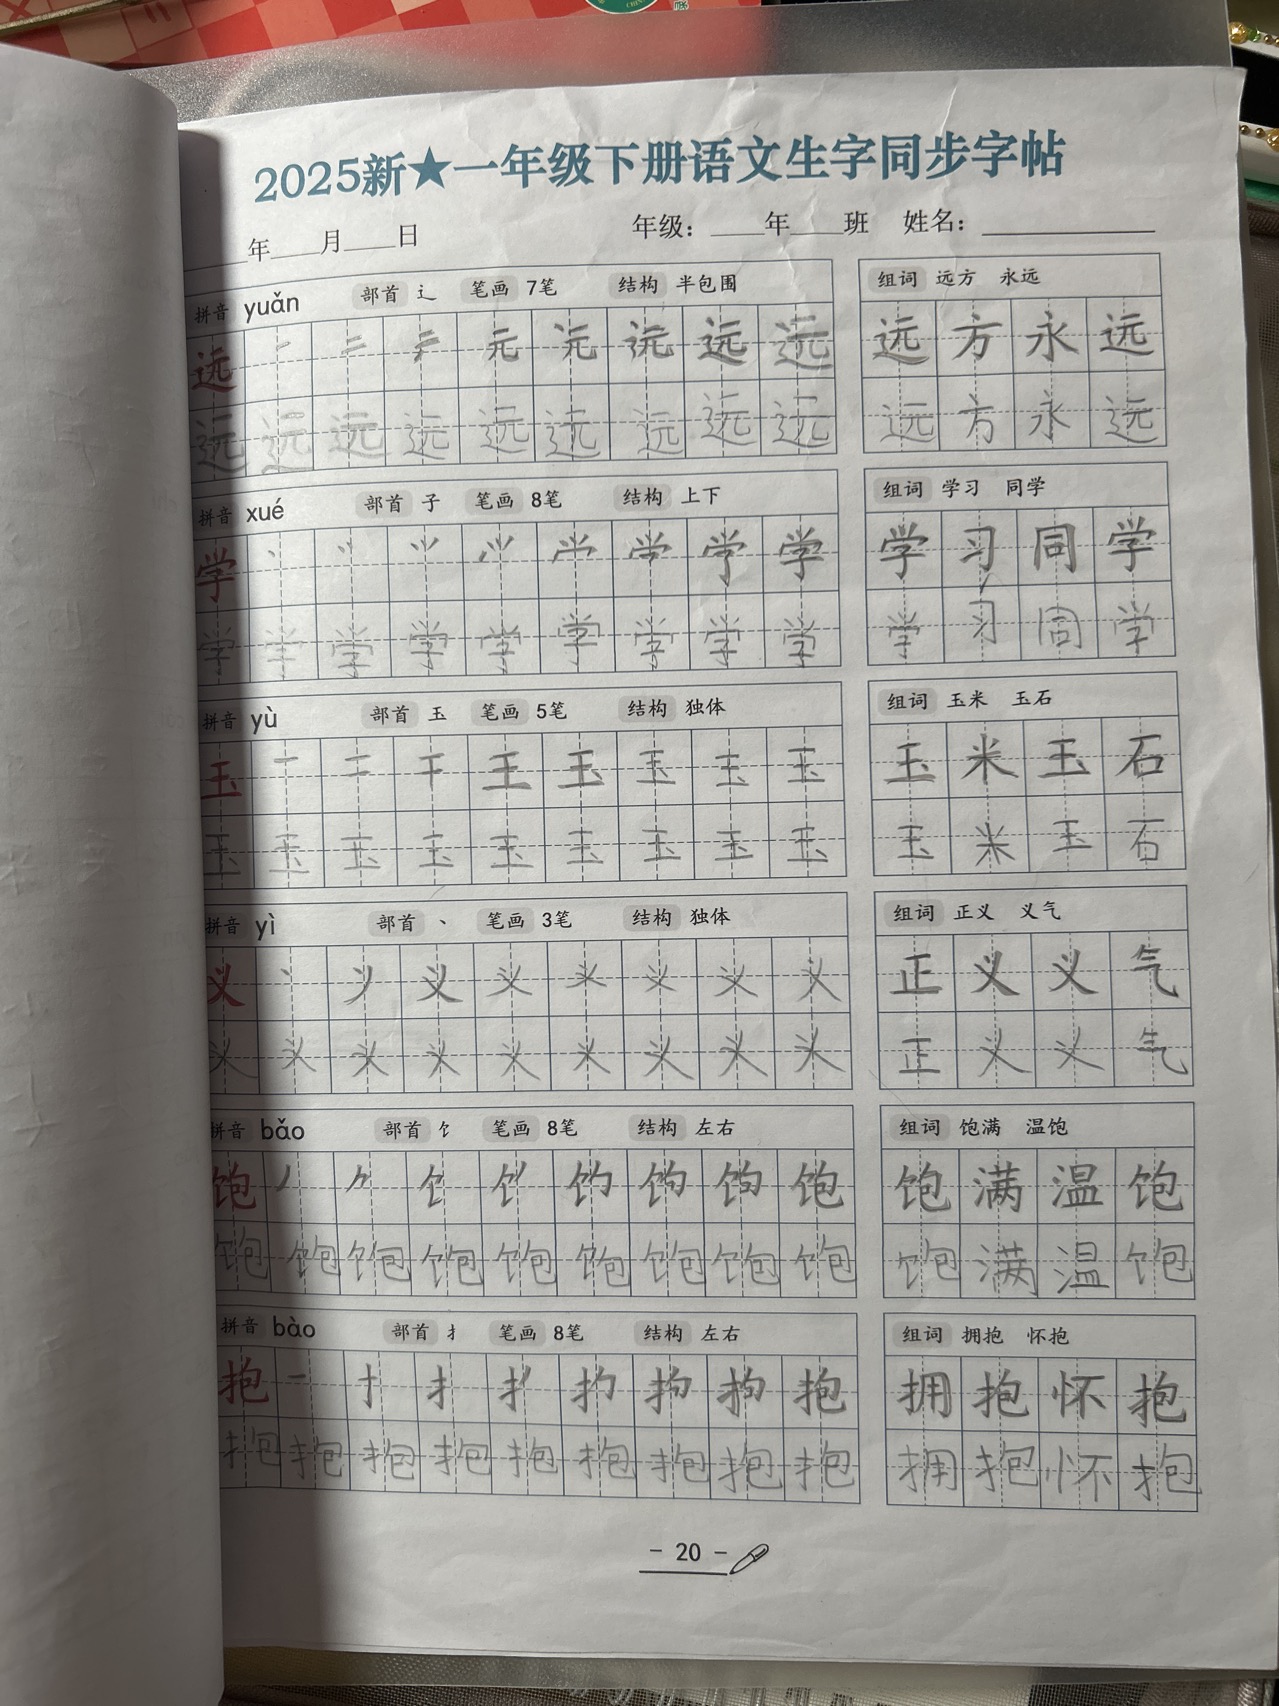 2025新★一年级下册语文生字同步字帖
年 月 日 年级： 年 班 姓名：
拼音 yuǎn 部首 辶 笔画 7笔 结构 半包围
远 一 二 テ 元 元 远 远 远
远 远 远 远 远 远 远 远 远
组词 远方 永远
远 方 永 远
远 方 永 远
拼音 xué 部首 子 笔画 8笔 结构 上下
学 学 学
学 学 学 学 学 学 学 学 学
组词 学习 同学
学 习 同 学
学 习 同 学
拼音 yù 部首 玉 笔画 5笔 结构 独体
玉 一 二 干 王 玉 玉 玉 玉
玉 玉 玉 玉 玉 玉 玉 玉 玉
组词 玉米 玉石
玉 米 玉 石
玉 米 玉 石
拼音 yì 部首 丶 笔画 3笔 结构 独体
义 丶 丷 义 义 义 义 义 义
义 义 义 义 义 义 义 义 义
组词 正义 义气
正 义 义 气
正 义 义 气
拼音 bǎo 部首 饣 笔画 8笔 结构 左右
饱 丿 饣 饱
饱 饱 饱 饱 饱 饱 饱 饱 饱
组词 饱满 温饱
饱 满 温 饱
饱 满 温 饱
拼音 bào 部首 扌 笔画 8笔 结构 左右
抱 一 十 扌 扚 拘 抱
抱 抱 抱 抱 抱 抱 抱 抱 抱
组词 拥抱 怀抱
拥 抱 怀 抱
拥 抱 怀 抱
- 20 -